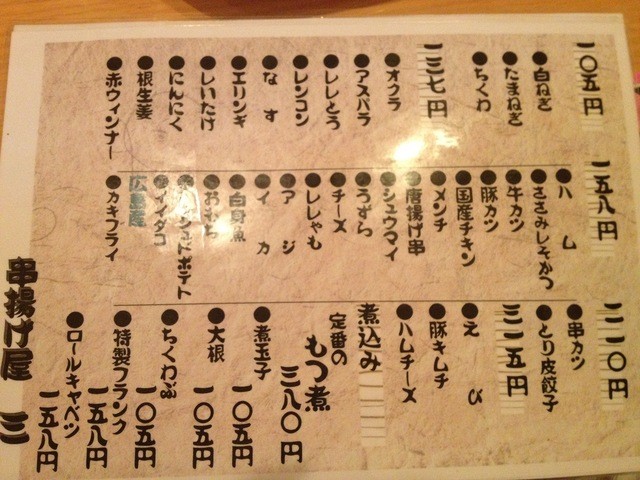 一〇五円
●白ねぎ
●たまねぎ
●ちくわ
一三七円
●オクラ
●アスパラ
●ししとう
●レンコン
●なす
●エリンギ
●しいたけ
●にんにく
●根生姜
●赤ウィンナー
一五八円
●ハム
●ささみしそかつ
●牛カツ
●豚カツ
●国産チキン
●メンチ
●唐揚げ串
●シュウマイ
●うずら
●チーズ
●ししゃも
●アジ
●イカ
●白身魚
●おもち
●ハッシュドポテト
●イイダコ
広島産
●カキフライ
二一〇円
●串カツ
●とり皮餃子
三一五円
●えび
●豚キムチ
●ハムチーズ
煮込み
定番の
もつ煮
三八〇円
●煮玉子
一〇五円
●大根
一〇五円
●ちくわぶ
一〇五円
●特製フランク
一五八円
●ロールキャベツ
一五八円
串揚げ屋 三